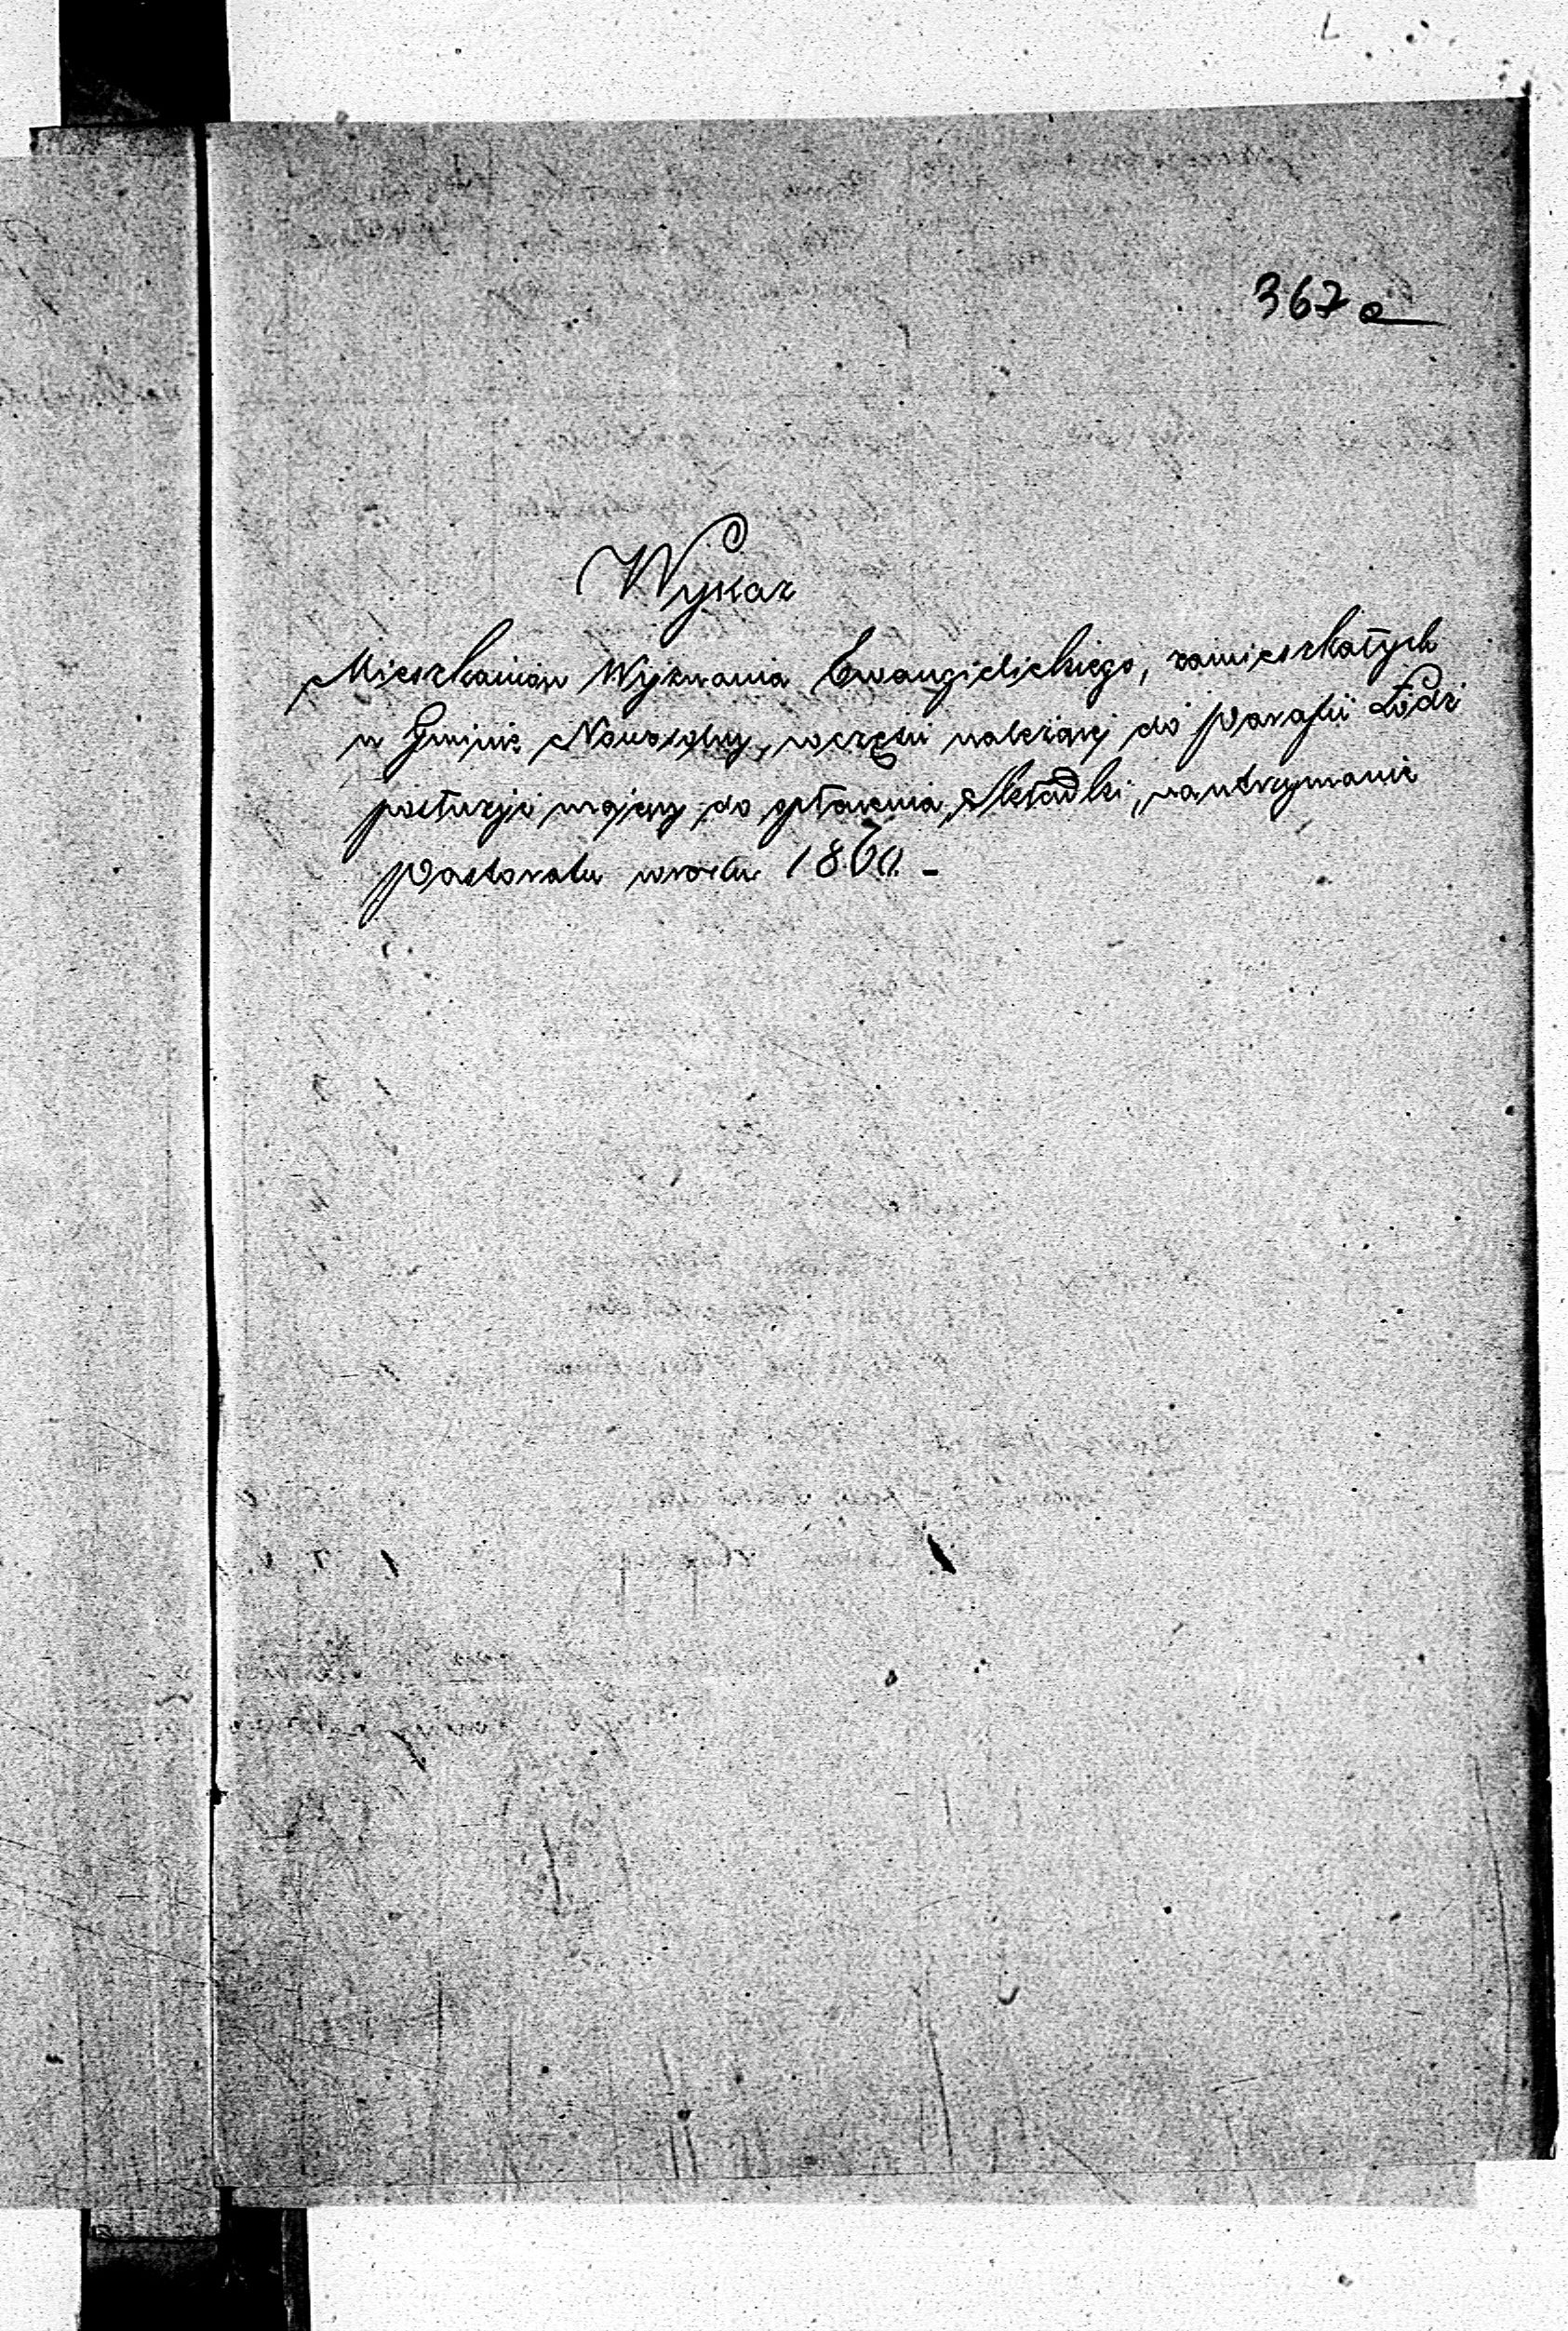 367 a
Wykaz
Mieszkańców Wyznania Ewangielickiego, zamieszkałych
w Gminie Nowosolny, wczęści należący do Parafii Łódz
mający do płacenia Składki, na utrzymanie
Pastoratu wroku 1860. -